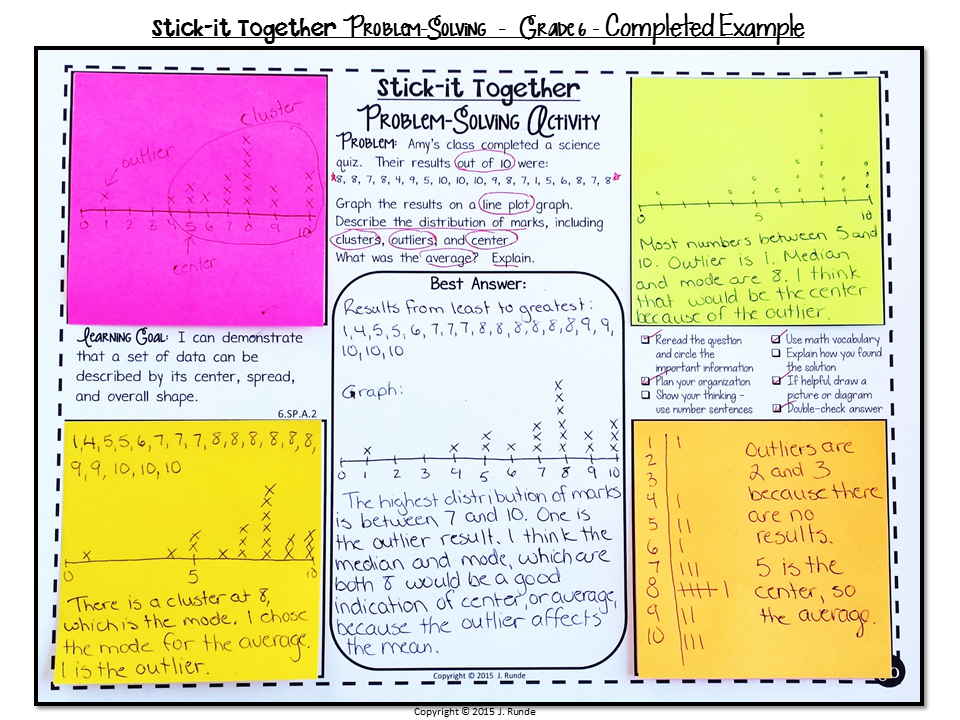 Stick-it Together Problem-Solving - Grade 6 - Completed Example
Stick-it Together
Problem-Solving Activity
Problem: Amy's class completed a science
quiz. Their results out of 10 were:
8, 8, 7, 8, 4, 9, 5, 10, 10, 10, 9, 8, 7, 1, 5, 6, 8, 7, 8
Graph the results on a line plot graph.
Describe the distribution of marks, including
clusters, outliers, and center.
What was the average? Explain.
cluster
outlier
0 1 2 3 4 5 6 7 8 9 10
center
0 5 10
Most numbers between 5 and
10. Outlier is 1. Median
and mode are 8. I think
that would be the center
because of the outlier.
Learning Goal: I can demonstrate
that a set of data can be
described by its center, spread,
and overall shape.
6.SP.A.2
Best Answer:
Results from least to greatest:
1, 4, 5, 5, 6, 7, 7, 7, 8, 8, 8, 8, 8, 8, 9, 9,
10, 10, 10
Graph:
0 1 2 3 4 5 6 7 8 9 10
The highest distribution of marks
is between 7 and 10. One is
the outlier result. I think the
median and mode, which are
both 8 would be a good
indication of center, or average,
because the outlier affects
the mean.
Reread the question
and circle the
important information
Plan your organization
Show your thinking –
use number sentences
Use math vocabulary
Explain how you found
the solution
If helpful, draw a
picture or diagram
Double-check answer
1, 4, 5, 5, 6, 7, 7, 7, 8, 8, 8, 8, 8, 8,
9, 9, 10, 10, 10
0 5 10
There is a cluster at 8,
which is the mode. I chose
the mode for the average.
1 is the outlier.
1
2
3
4
5
6
7
8
9
10
Outliers are
2 and 3
because there
are no
results.
5 is the
center, so
the average.
Copyright © 2015 J. Runde
Copyright © 2015 J. Runde